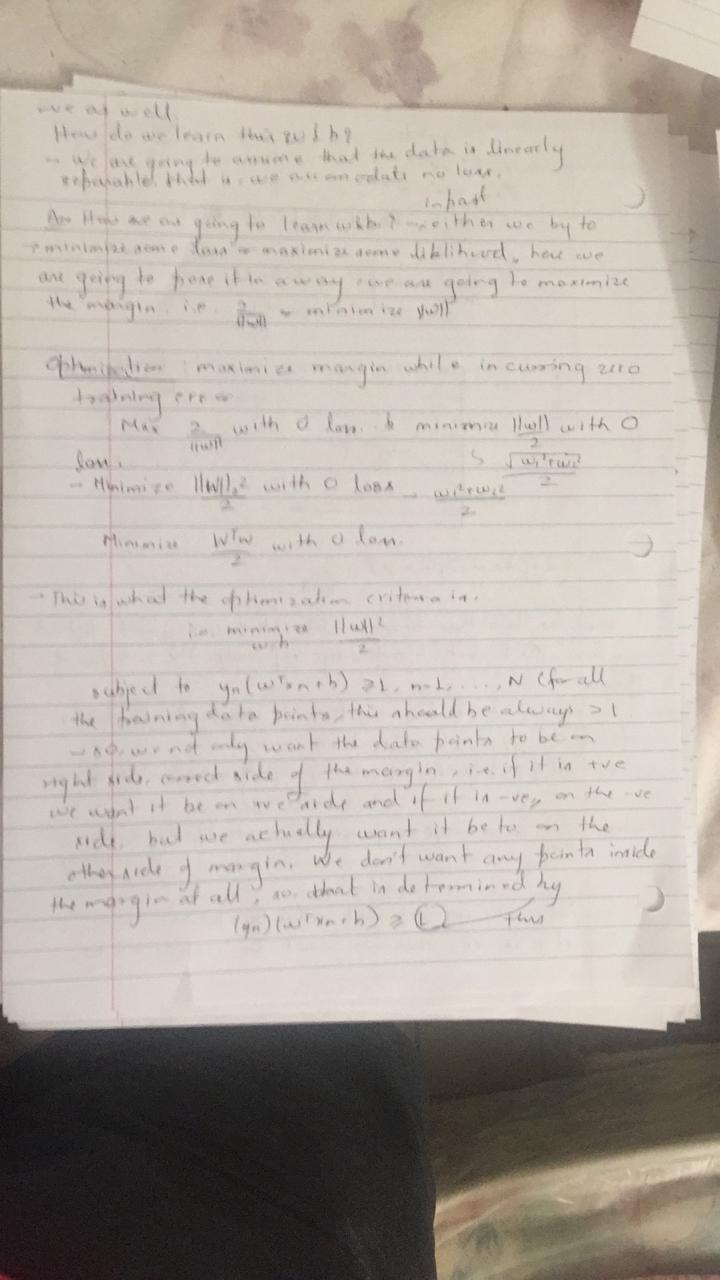 -ve as well.
How do we learn this w & b?
→ We are going to assume that the data is linearly
separable, that is we accomodate no loss.
in past
How are we going to learn w & b? → either we try to
minimize some loss or maximize some liklihood, here we
are going to pose it in a way we are going to maximize
the margin i.e. 2/||w|| or minimize ||w||
Optimization: maximize margin while incurring zero
training error
Max 2/||w|| with 0 loss. & minimize ||w||/2 with 0
loss. ↳ √(w₁²+w₂²)/2
→ Minimize ||w||₂²/2 with 0 loss → (w₁²+w₂²)/2
Minimize wᵀw/2 with 0 loss.
→ This is what the optimization criteria is.
i.e. minimize ||w||²/2
w,b
subject to yn(wᵀxn+b) ≥1, n=1, ...., N (for all
the training data points, this should be always >1
→ so, we not only want the data points to be on
right side, correct side of the margin, i.e. if it is +ve
we want it be on +ve side and if it is -ve, on the -ve
side, but we actually want it be to on the
other side of margin. We don't want any points inside
the margin at all, so, that is determined by
(yn)(wᵀxn+b) ≥ 1 This